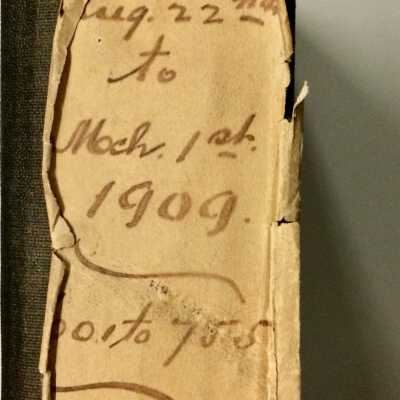 Aug. 22nd
to
Mch. 1st.
1909.
01 to 755